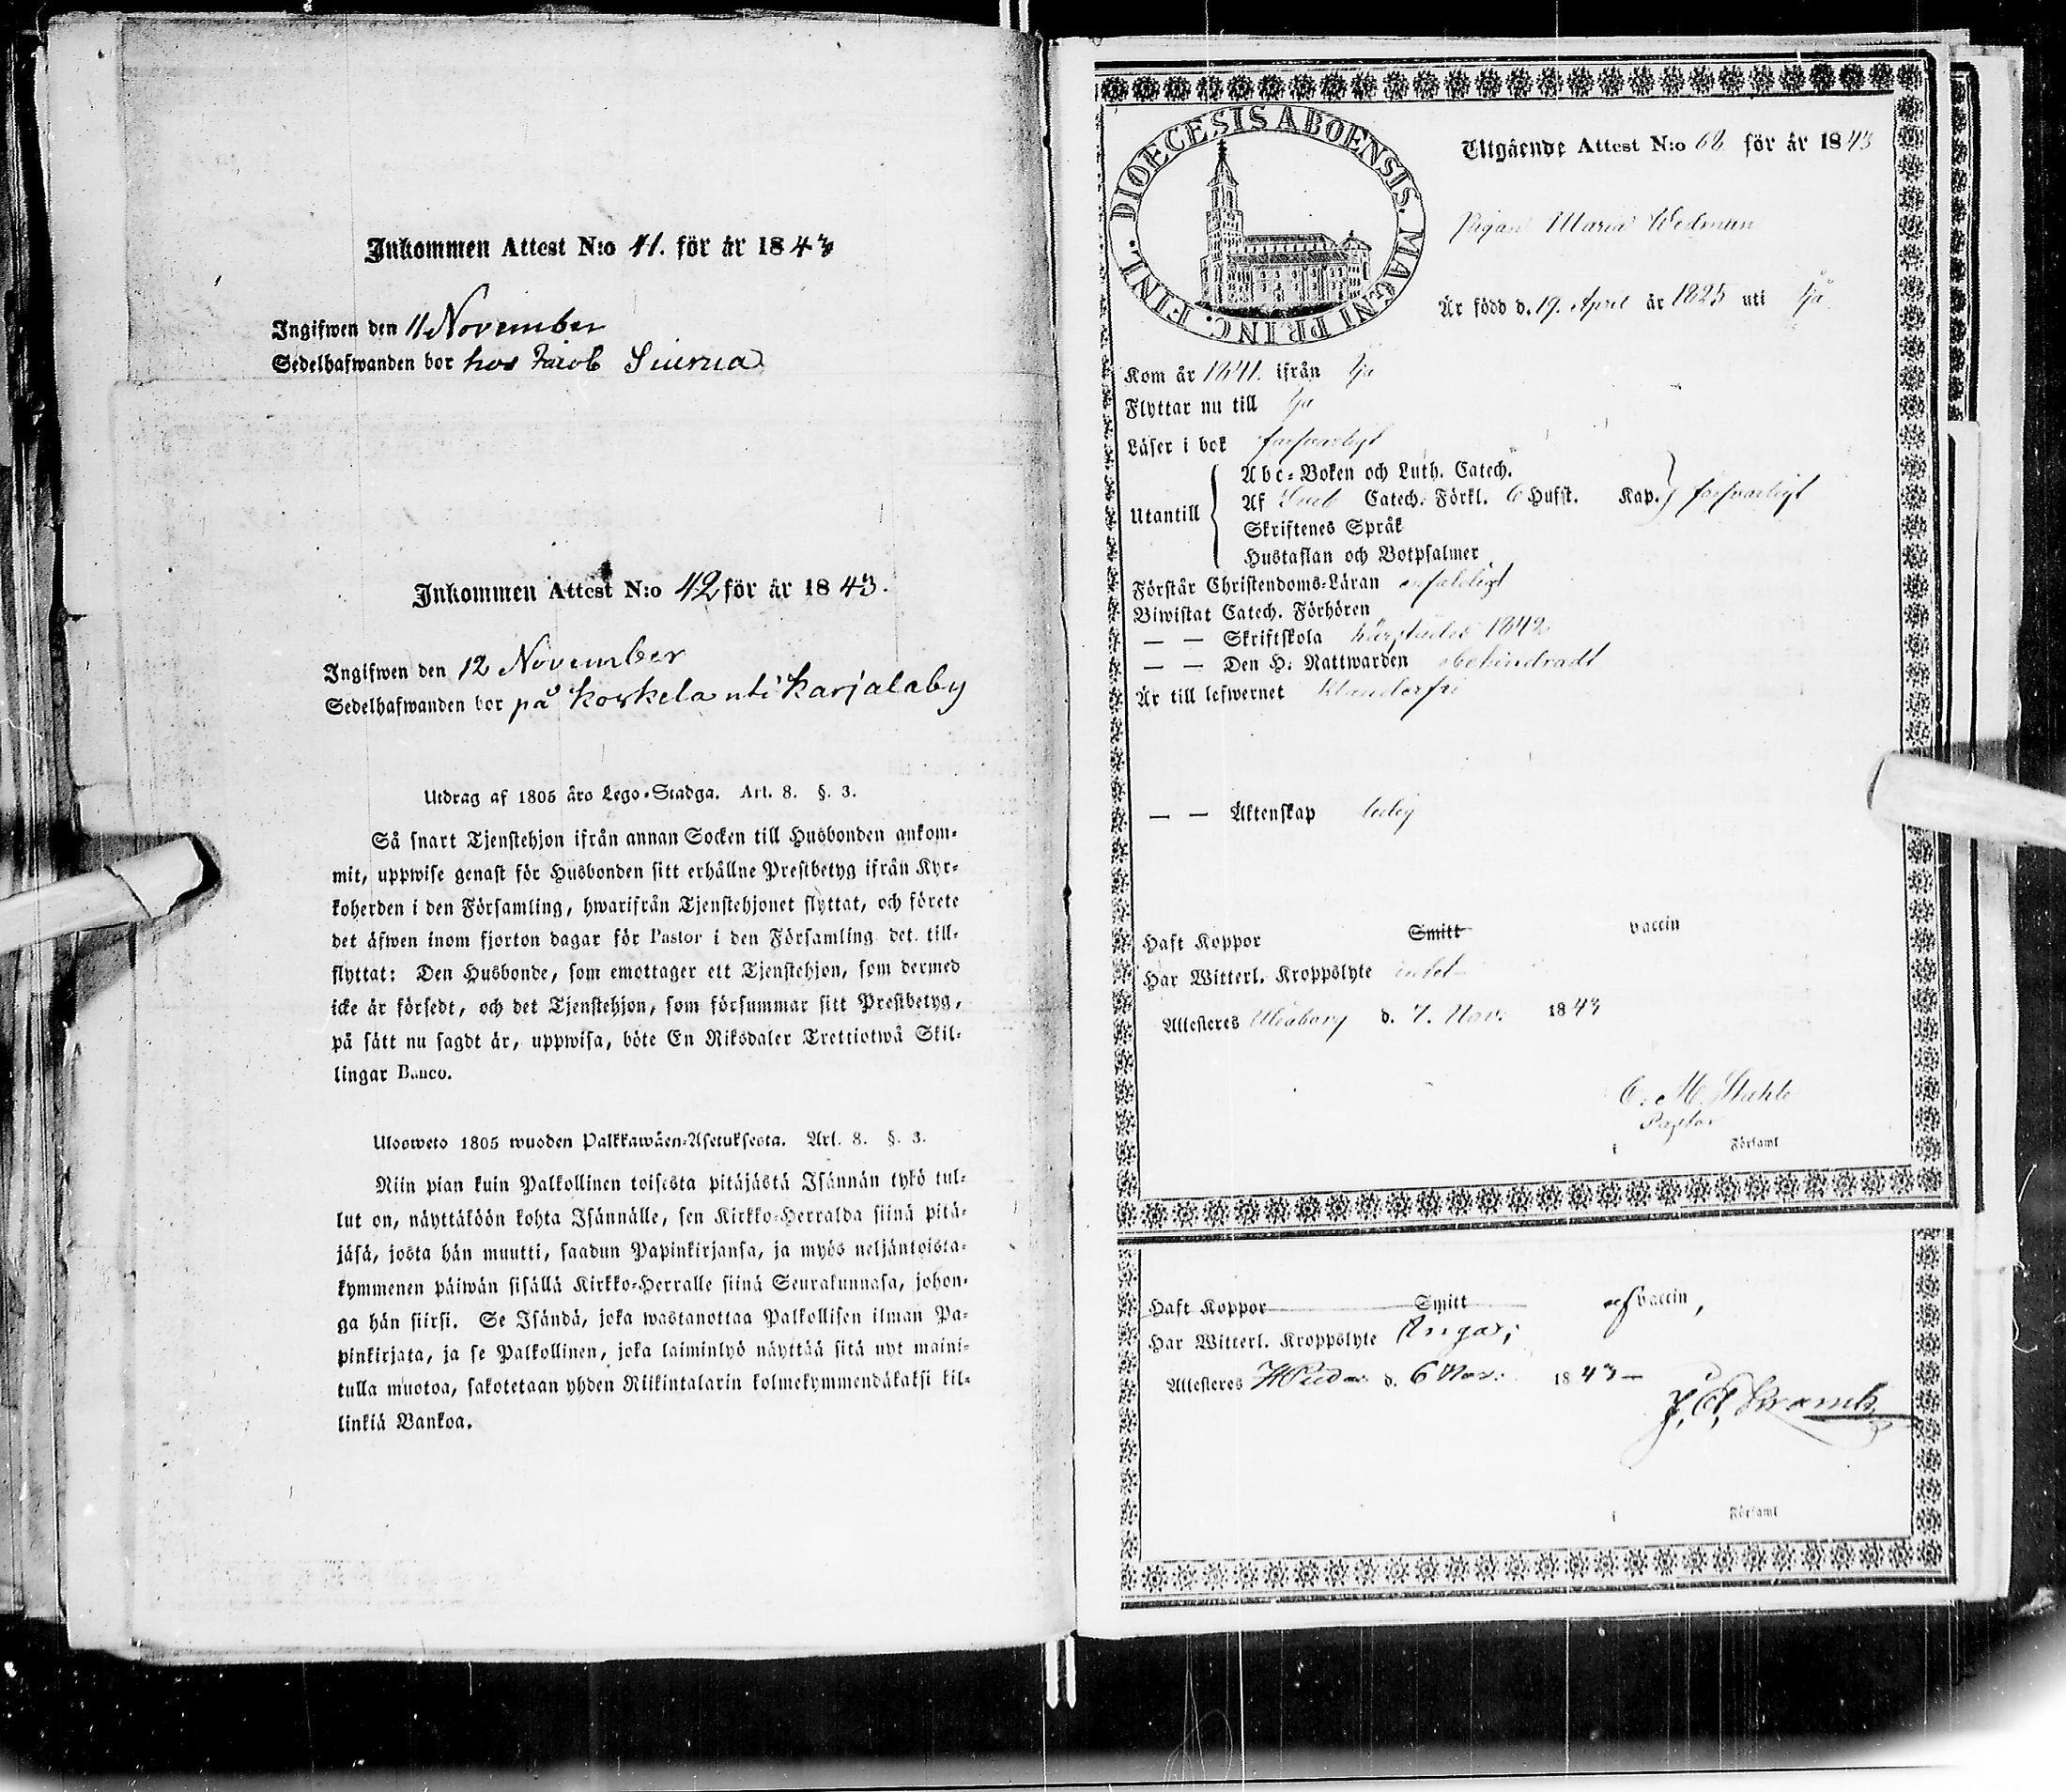 Inkommen Attest N:o 41. för år 1843
Ingifwen den 11 November
Sedelhafwanden bor hos Jacob Siurua
Inkommen Attest N:o 42 för år 1843.
Ingifwen den 12 November
Sedelhafwanden bor på Koskela uti Karjalaby
Utdrag af 1805 års Lego-Stadga. Art. 8. §. 3.
Så snart Tjenstehjon ifrån annan Socken till Husbonden ankom-
mit, uppwise genast för Husbonden sitt erhållne Prestbetyg ifrån Kyr-
koherden i den Församling, hwarifrån Tjenstehjonet flyttat, och förete
det äfwen inom fjorton dagar för Pastor i den Församling det till-
flyttat: Den Husbonde, som emottager ett Tjenstehjon, som dermed
icke är försedt, och det Tjenstehjon, som försummar sitt Prestbetyg,
på sätt nu sagdt är, uppwisa, böte En Riksdaler Trettiotwå Skil-
lingar Banco.
Uloosweto 1805 wuoden Palkkawäen-Asetuksesta. Art. 8. §. 3.
Niin pian kuin Palkollinen toisesta pitäjästä Isännän tykö tul-
lut on, näyttäköön kohta Isännälle, sen Kirkko-Herralda siinä pitä-
jäsä, josta hän muutti, saadun Papinkirjansa, ja myös neljäntoista-
kymmenen päiwän sisällä Kirkko-Herralle siinä Seurakunnasa, johon-
ga hän siirsi. Se Isändä, joka wastanottaa Palkollisen ilman Pa-
pinkirjata, ja se Palkollinen, joka laiminlyö näyttää sitä nyt maini-
tulla muotoa, sakotetaan yhden Riikintalarin kolmekymmendäkaksi kil-
linkiä Bankoa.
DIOECESIS ABOENSIS. MAGNI PRINC. FINL.
Utgående Attest N:o 68 för år 1843
Pigan Maria Wedman
Är född d. 19. April år 1825 uti Ijo
Kom år 1841. ifrån Ijo
Flyttar nu till Ijo
Läser i bok försvarligt
Utantill
Abc-Boken och Luth. Catech.
Af Sveb Catech. Förkl. 6 Hufst. Kap. försvarligt
Skriftenes Språk
Hustaflan och Botpsalmer
Förstår Christendoms-Läran enfaldigt
Biwistat Catech. Förhören
— — Skriftskola härstädes 1842
— — Den H. Nattwarden obehindradt
Är till lefwernet klanderfri
— — Äktenskap ledig
Haft Koppor Smitt vaccin
Har Witterl. Kroppslyte intet
Attesteras Uleåborg d. 7. Nov. 1843
C. M. Stahle
Pastor
i Församl
Haft Koppor Smitt af vaccin,
Har Witterl. Kroppslyte Inga;
Attesteras d. 6 Nov. 1843 —
i Församl